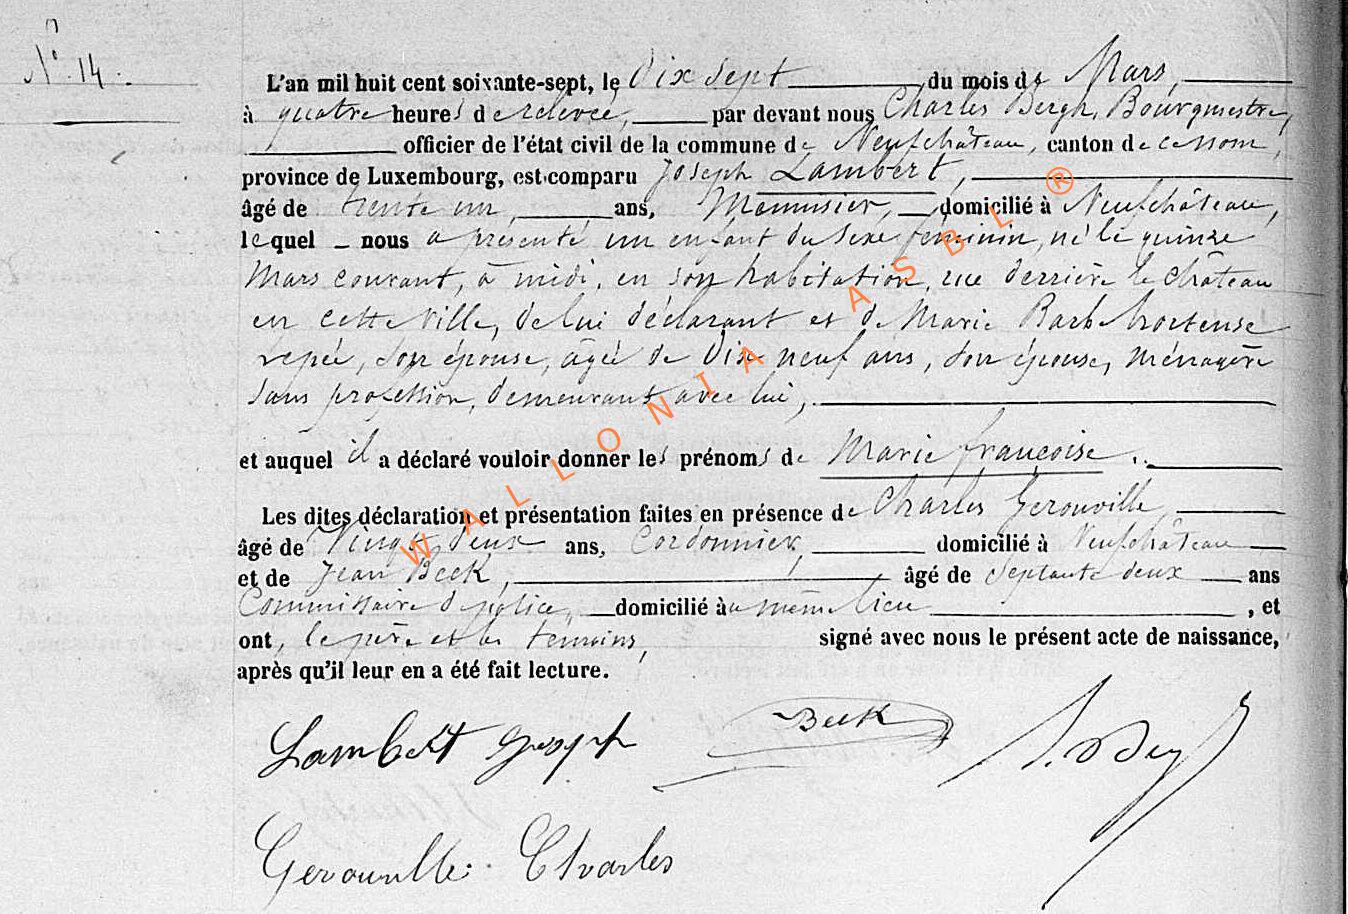 N° 14.
L'an mil huit cent soixante-sept, le Dix sept du mois de Mars,
à quatre heures de relevée, par devant nous Charles Bergh, Bourgmestre,
officier de l'état civil de la commune de Neufchâteau, canton de ce nom,
province de Luxembourg, est comparu Joseph Lambert,
âgé de trente un, ans, Menuisier, domicilié à Neufchâteau,
lequel nous a présenté un enfant du sexe féminin, né le quinze
Mars courant, à midi, en son habitation, rue derrière le château
en cette ville, de lui déclarant et de Marie Barbe hortense
repée, son épouse, âgée de Dix neuf ans, son épouse, ménagère
sans profession, demeurant avec lui,
et auquel il a déclaré vouloir donner les prénoms de Marie françoise.
Les dites déclaration et présentation faites en présence de Charles Gerouville,
âgé de Vingt deux ans, Cordonnier, domicilié à Neufchâteau
et de Jean Beck, âgé de septante deux ans
Commissaire de police, domicilié au même lieu, et
ont, le père et les témoins, signé avec nous le présent acte de naissance,
après qu'il leur en a été fait lecture.
Lambert Joseph Beck
Gerouville Charles
WALLONIA ASBL ®